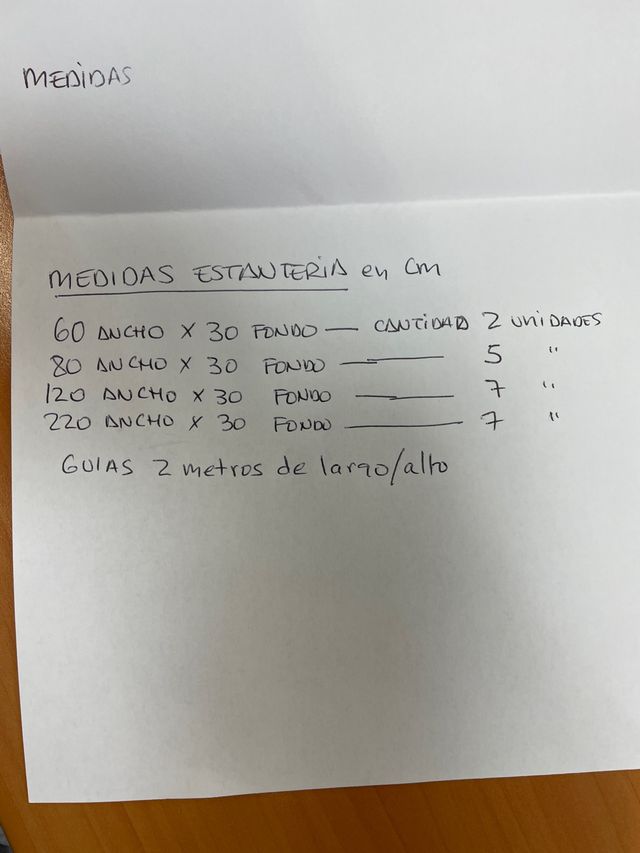 MEDIDAS
MEDIDAS ESTANTERIA en Cm
60 ANCHO X 30 FONDO — CANTIDAD 2 UNIDADES
80 ANCHO X 30 FONDO — 5 "
120 ANCHO X 30 FONDO — 7 "
220 ANCHO X 30 FONDO — 7 "
GUIAS 2 metros de largo/alto